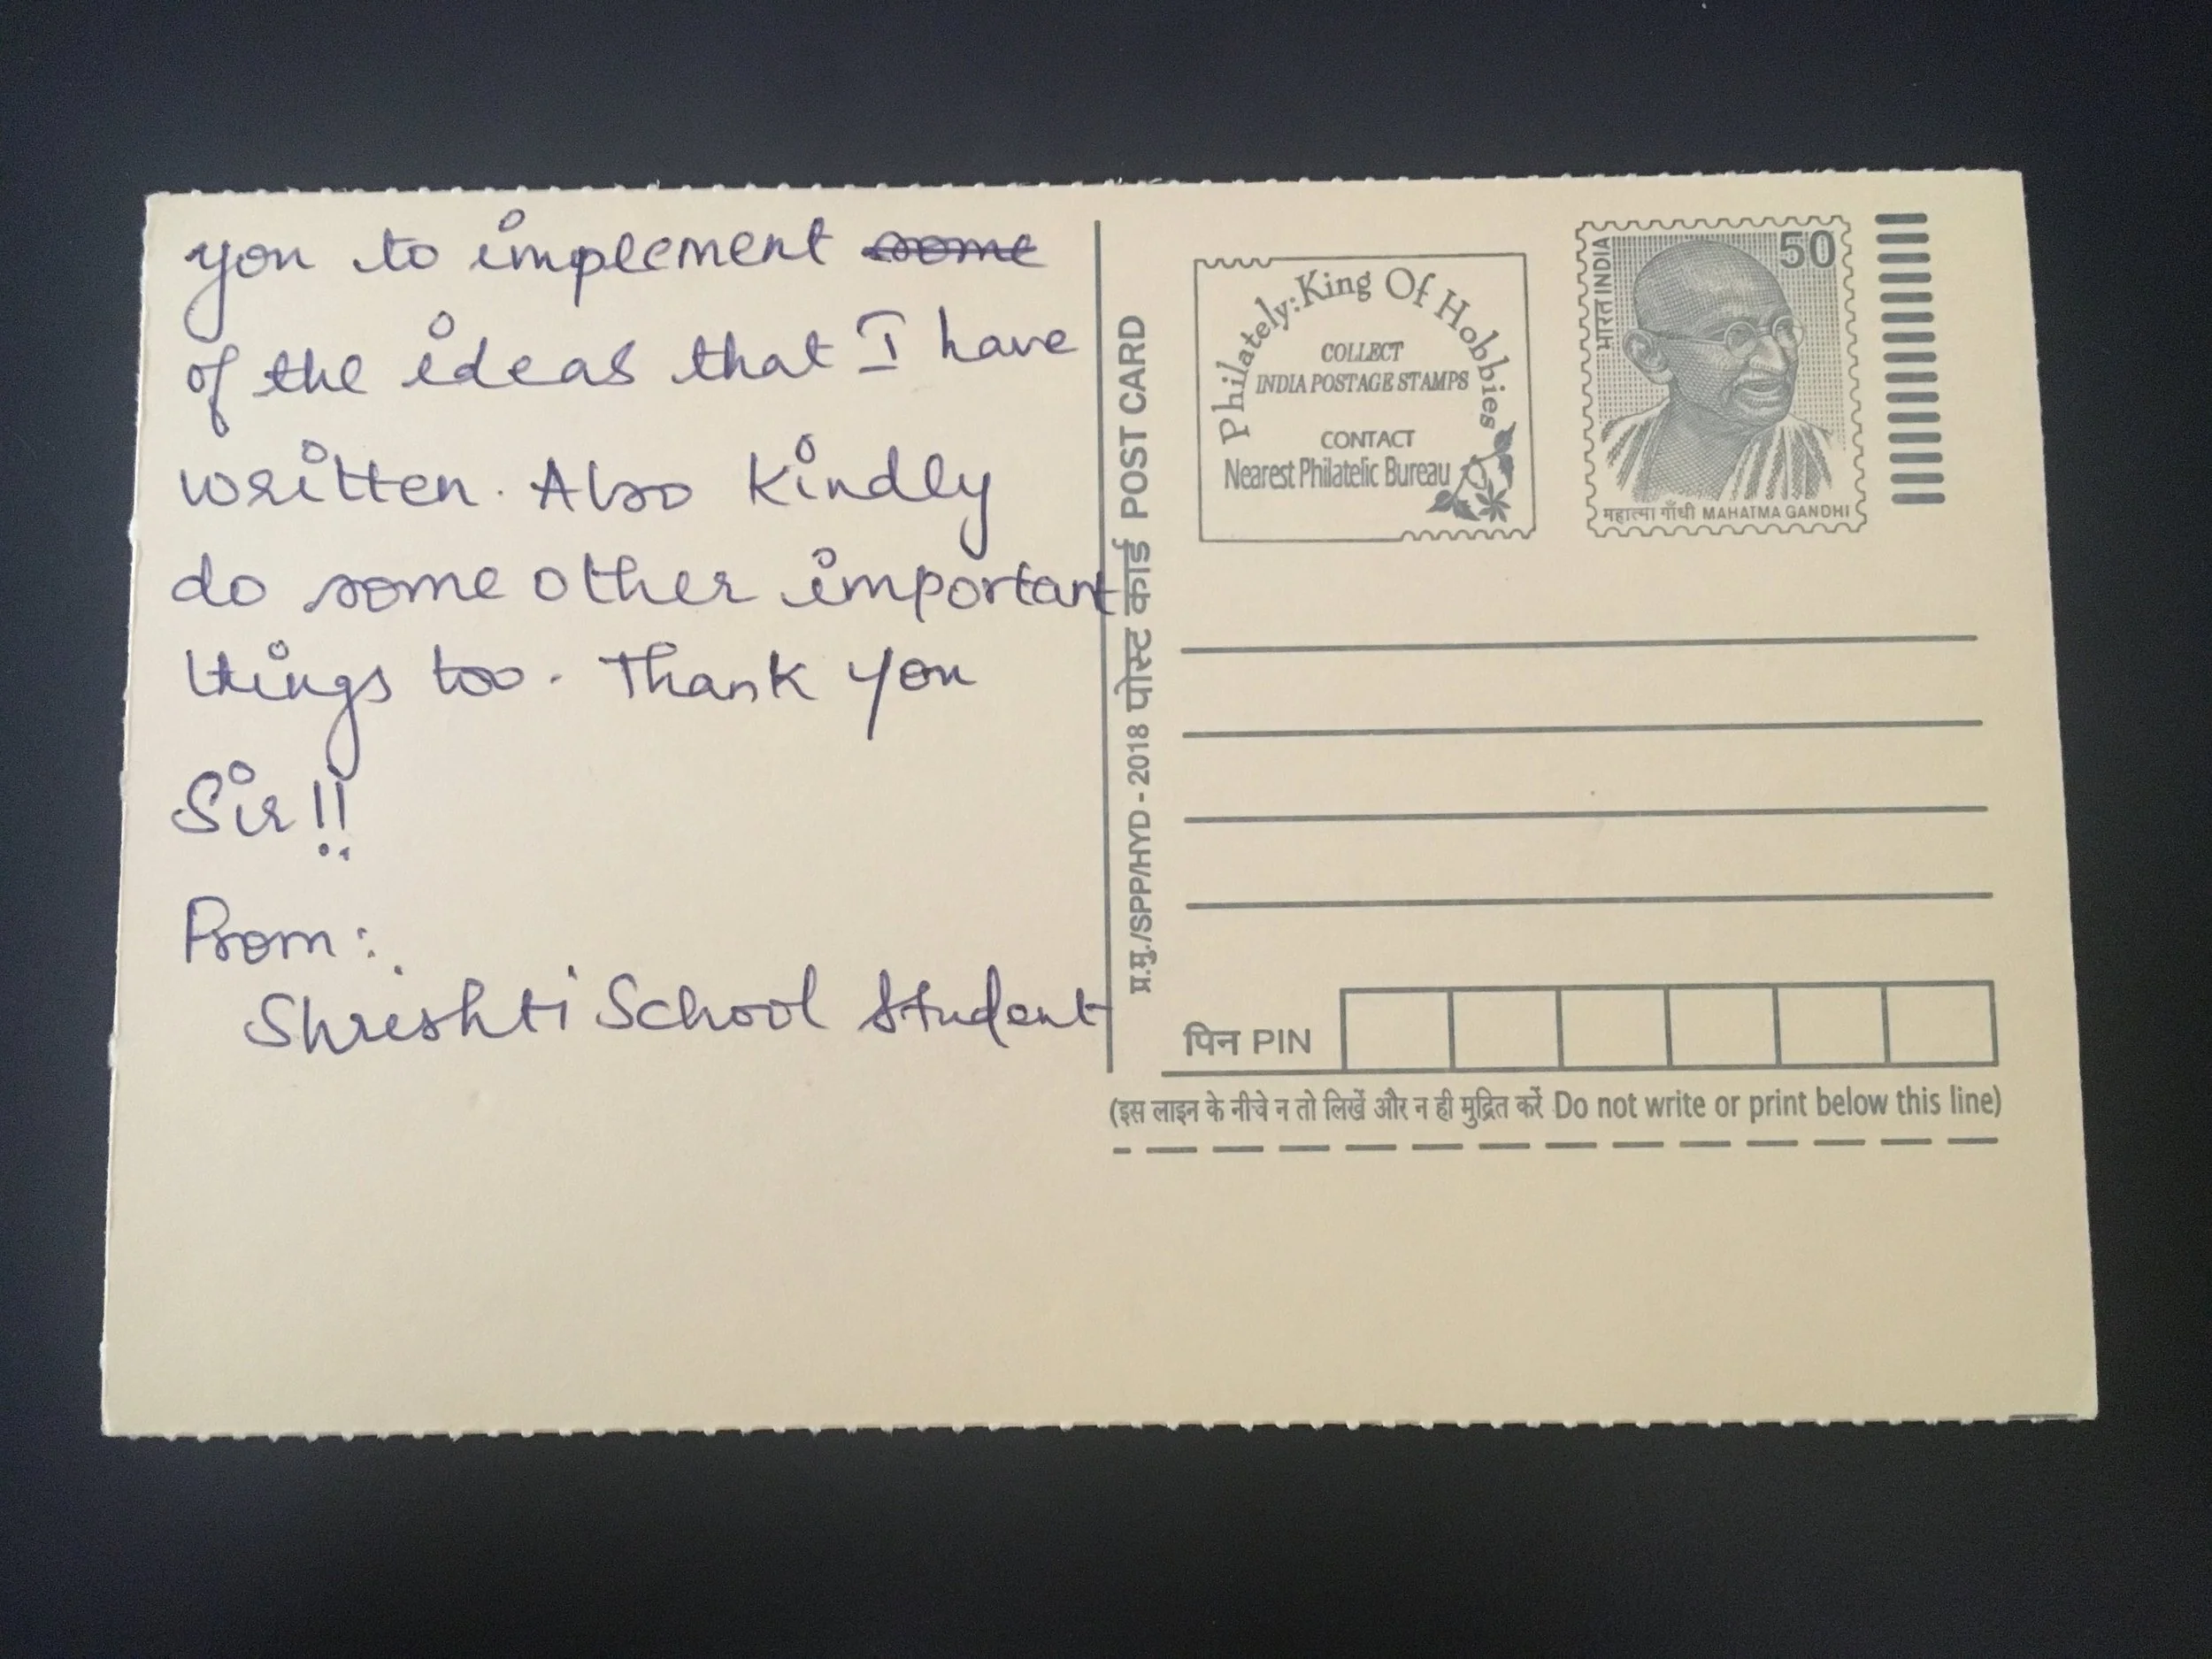 you to implement some
of the ideas that I have
written. Also Kindly
do some other important
things too. Thank you
Sir!!
From:
Shrishti School Student
प्र.मु./SPP/HYD - 2018 पोस्ट कार्ड POST CARD
Philately: King Of Hobbies
COLLECT
INDIA POSTAGE STAMPS
CONTACT
Nearest Philatelic Bureau
भारत INDIA
50
महात्मा गाँधी MAHATMA GANDHI
पिन PIN
(इस लाइन के नीचे न तो लिखें और न ही मुद्रित करें Do not write or print below this line)